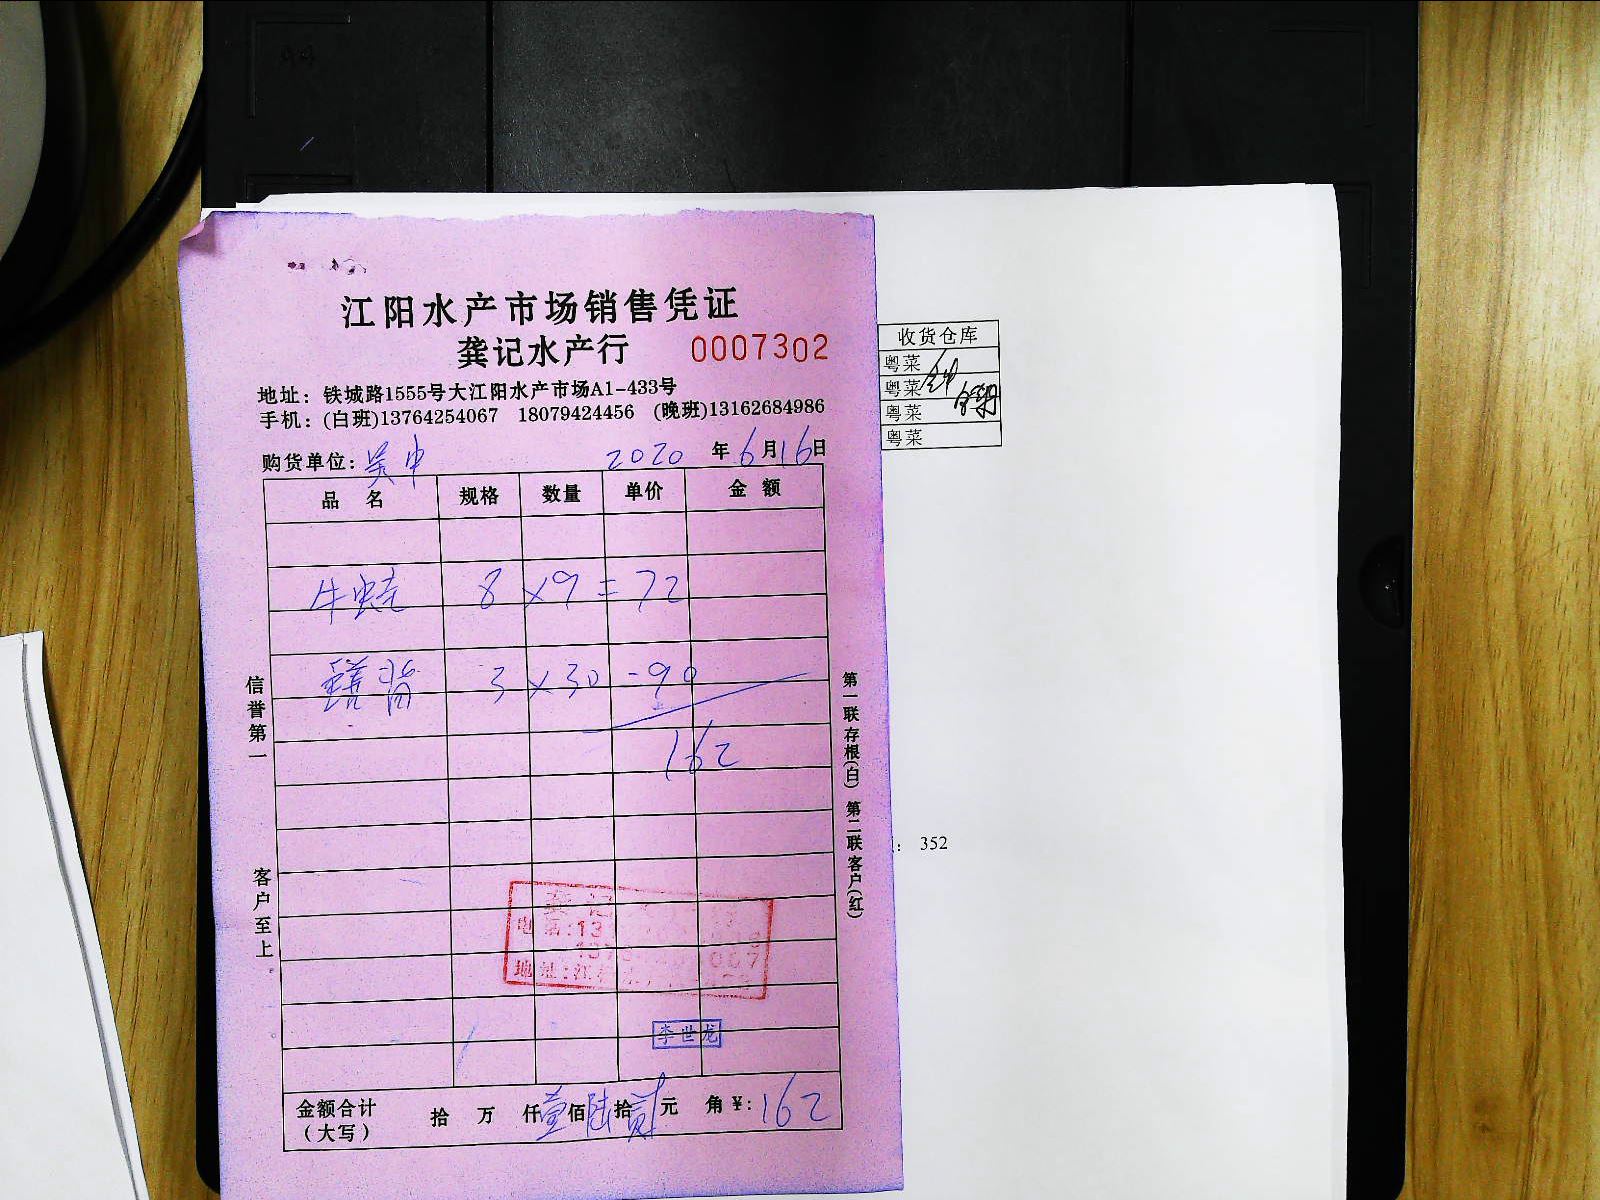 江阳水产市场销售凭证
龚记水产行 0007302
地址：铁城路1555号大江阳水产市场A1-433号
手机：(白班)13764254067 18079424456 (晚班)13162684986
购货单位：吴中 2020年6月16日
品名 规格 数量 单价 金额
牛蛙 8×9=72
鳝背 3×30-90
162
信誉第一
客户至上
第一联存根(白) 第二联客户(红)
电话:13
地址:江
李世龙
金额合计（大写） 拾 万 仟壹佰陆拾贰元 角 ¥:162
收货仓库
粤菜
粤菜
粤菜
粤菜
: 352